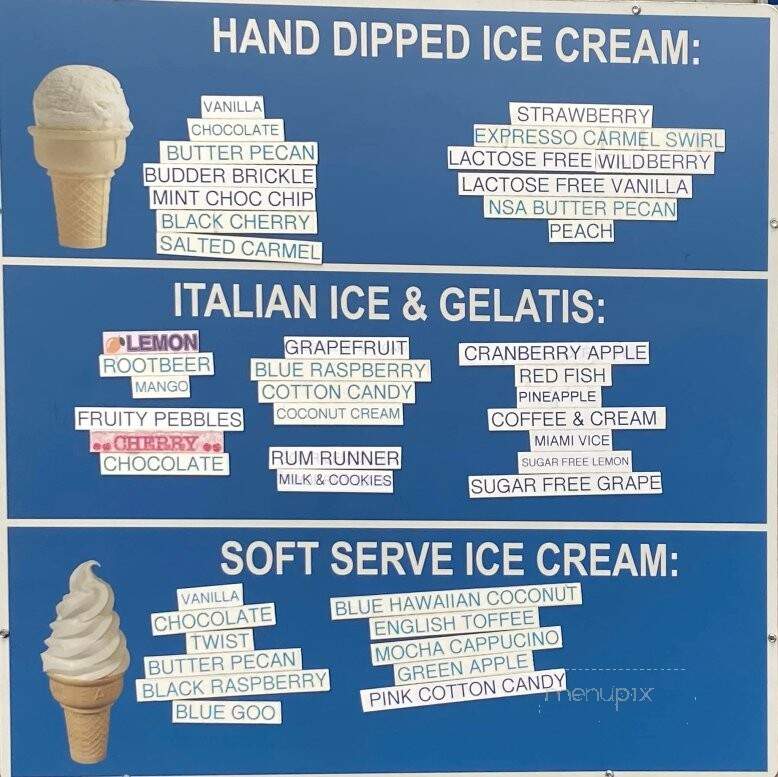 HAND DIPPED ICE CREAM:
VANILLA
CHOCOLATE
BUTTER PECAN
BUDDER BRICKLE
MINT CHOC CHIP
BLACK CHERRY
SALTED CARMEL
STRAWBERRY
EXPRESSO CARMEL SWIRL
LACTOSE FREE WILDBERRY
LACTOSE FREE VANILLA
NSA BUTTER PECAN
PEACH
ITALIAN ICE & GELATIS:
LEMON
ROOTBEER
MANGO
FRUITY PEBBLES
CHERRY
CHOCOLATE
GRAPEFRUIT
BLUE RASPBERRY
COTTON CANDY
COCONUT CREAM
RUM RUNNER
MILK & COOKIES
CRANBERRY APPLE
RED FISH
PINEAPPLE
COFFEE & CREAM
MIAMI VICE
SUGAR FREE LEMON
SUGAR FREE GRAPE
SOFT SERVE ICE CREAM:
VANILLA
CHOCOLATE
TWIST
BUTTER PECAN
BLACK RASPBERRY
BLUE GOO
BLUE HAWAIIAN COCONUT
ENGLISH TOFFEE
MOCHA CAPPUCINO
GREEN APPLE
PINK COTTON CANDY
menupix